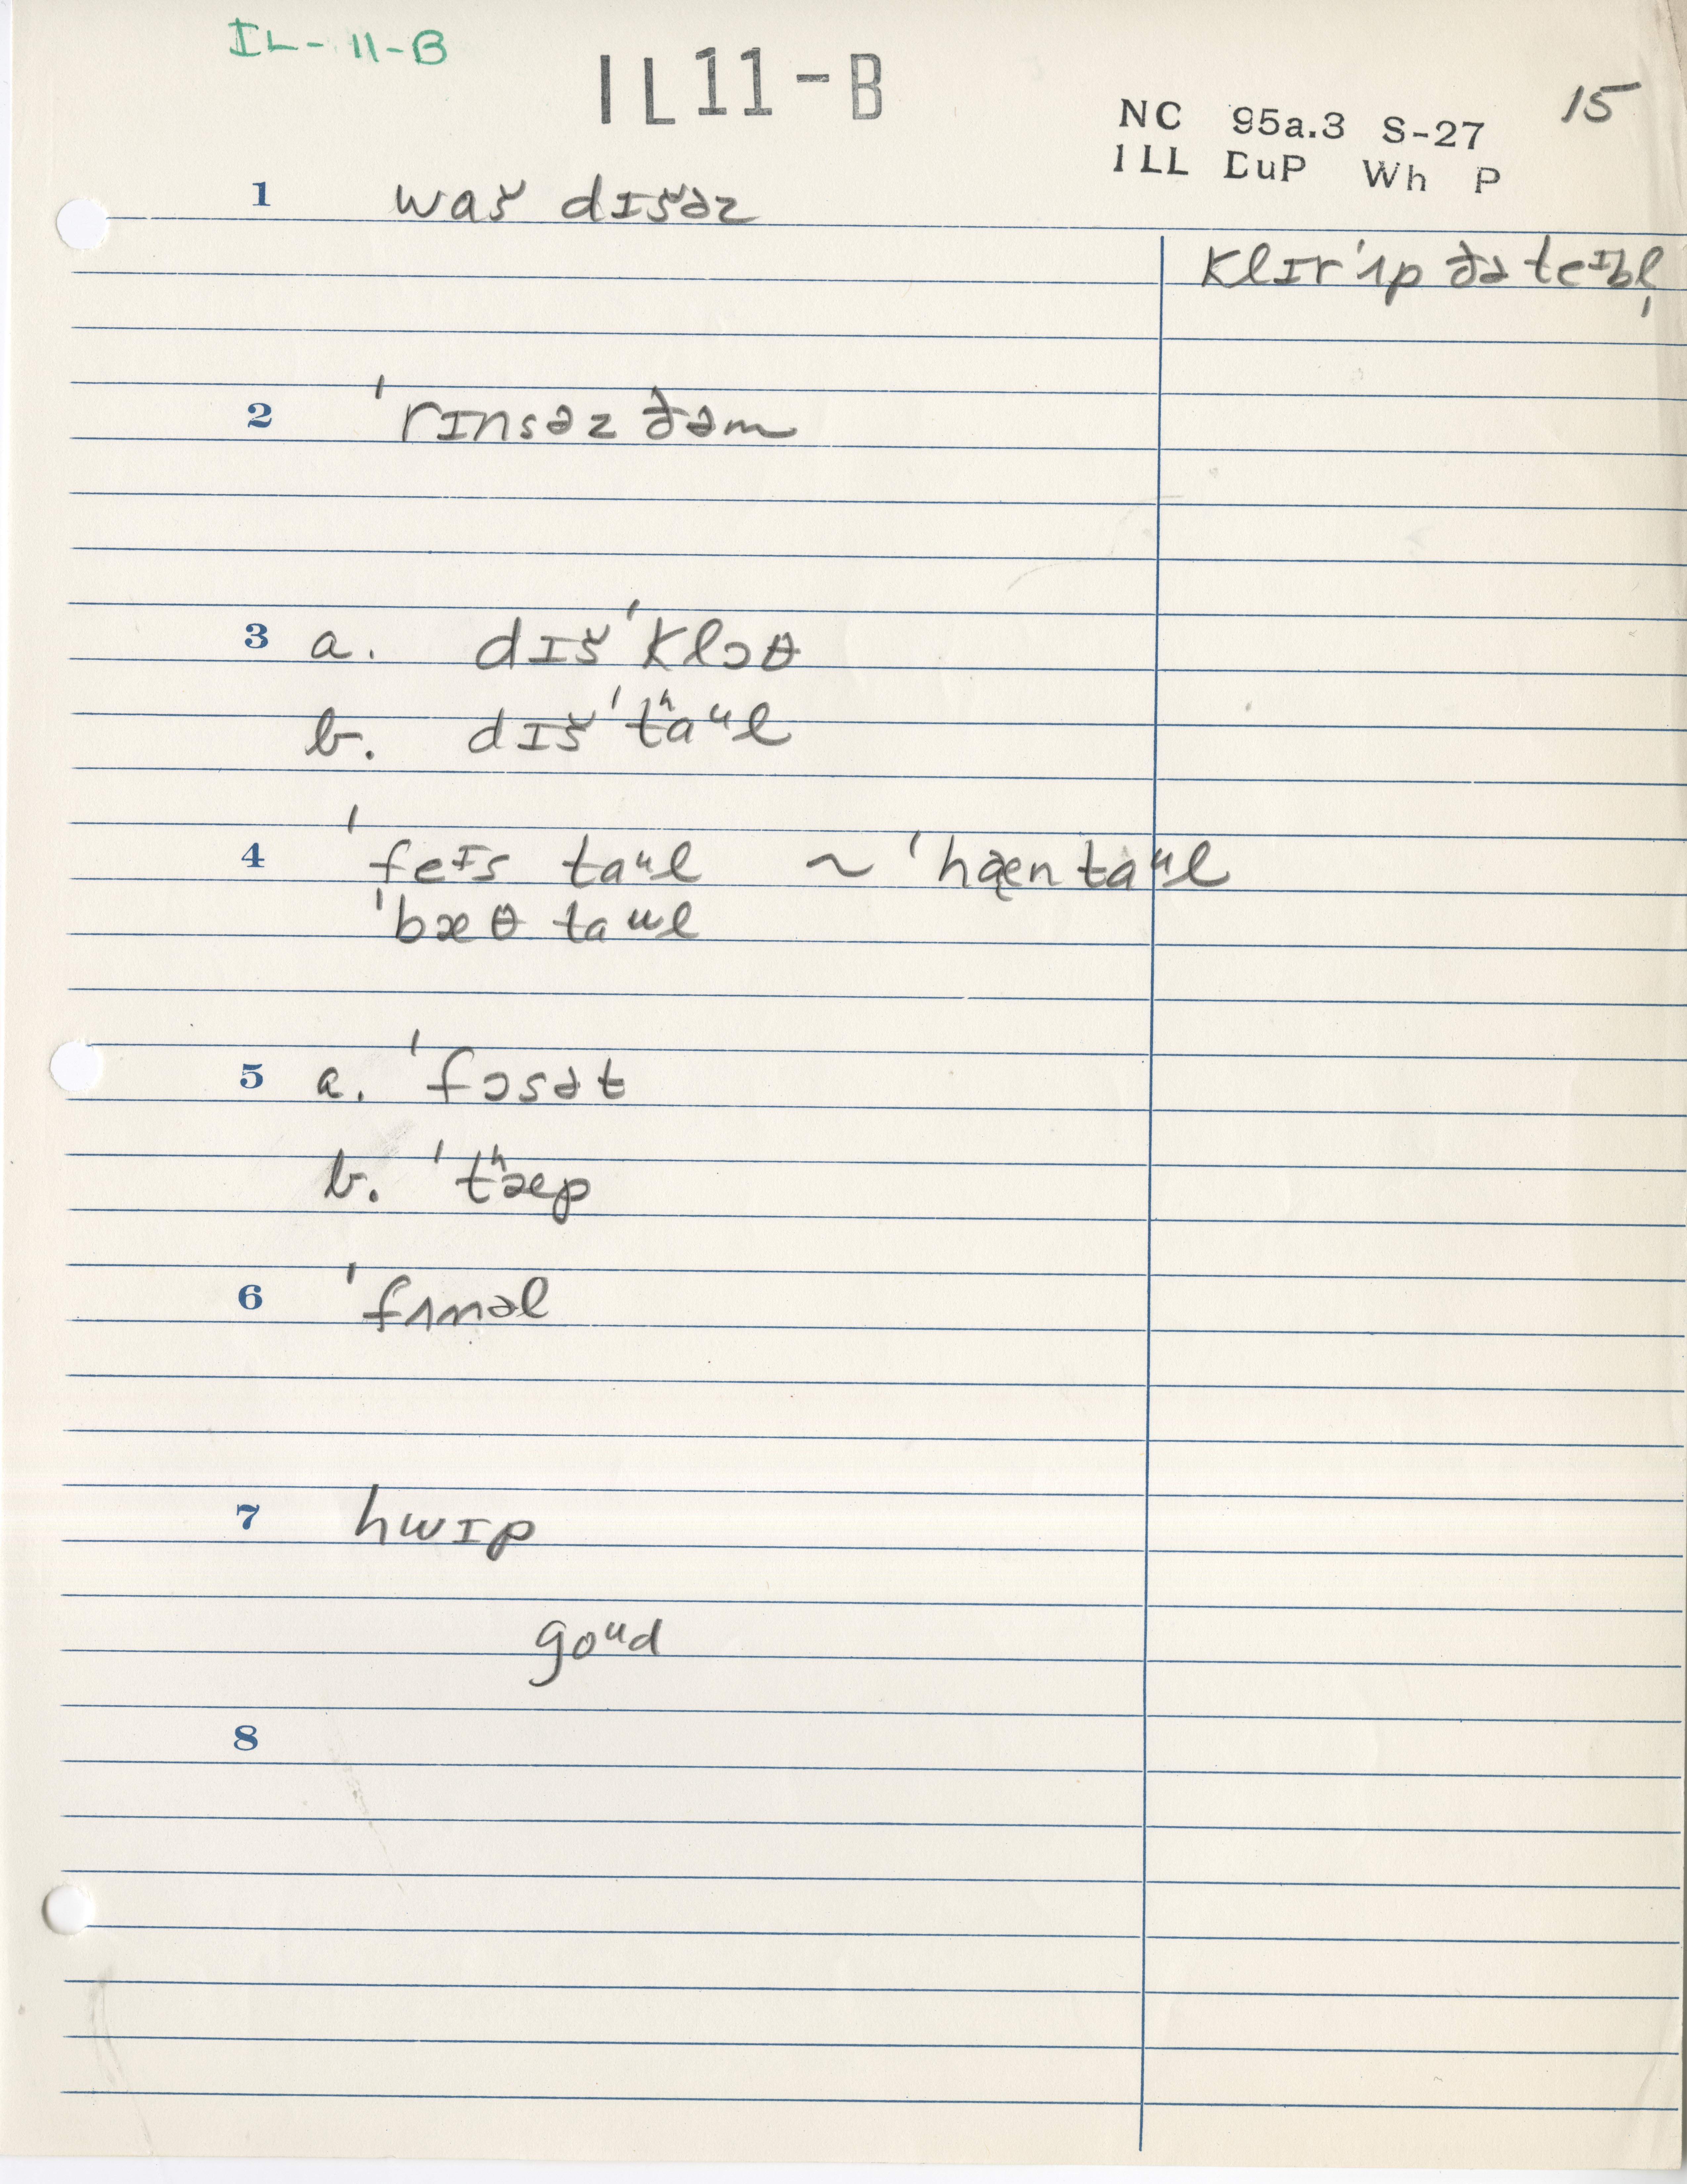 IL-11-B
IL11-B
15
NC 95a.3 S-27
ILL DuP Wh P
1 waš dɪšəz
klɪr ˈʌp ðə teᶦbl̩
2 ˈrɪnsəz ðəm
3 a. dɪš ˈklɔθ
b. dɪš ˈtʰaᵘl
4 ˈfeᶦs taᵘl ~ ˈhæn taᵘl
ˈbæθ taᵘl
5 a. ˈfɔsət
b. ˈtʰæp
6 ˈfʌnəl
7 hwɪp
goᵘd
8